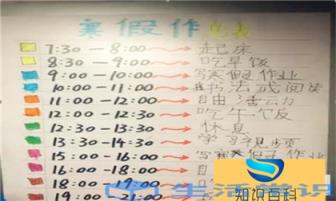 寒假作息表
7:30-8:00 → 起床
8:30-9:00 → 吃早饭
9:00-10:00 → 写寒假作业
10:00-11:00 → 书法或阅读
11:00-12:00 → 自由活动
12:00-12:30 → 吃午饭
12:30-13:30 → 休息
13:30-14:30 → 学习视频
15:00-16:00 → 写寒假作业
16:00-18:00 → 自
18:00-19:00
19:00-21:00
生活常识
知识百科